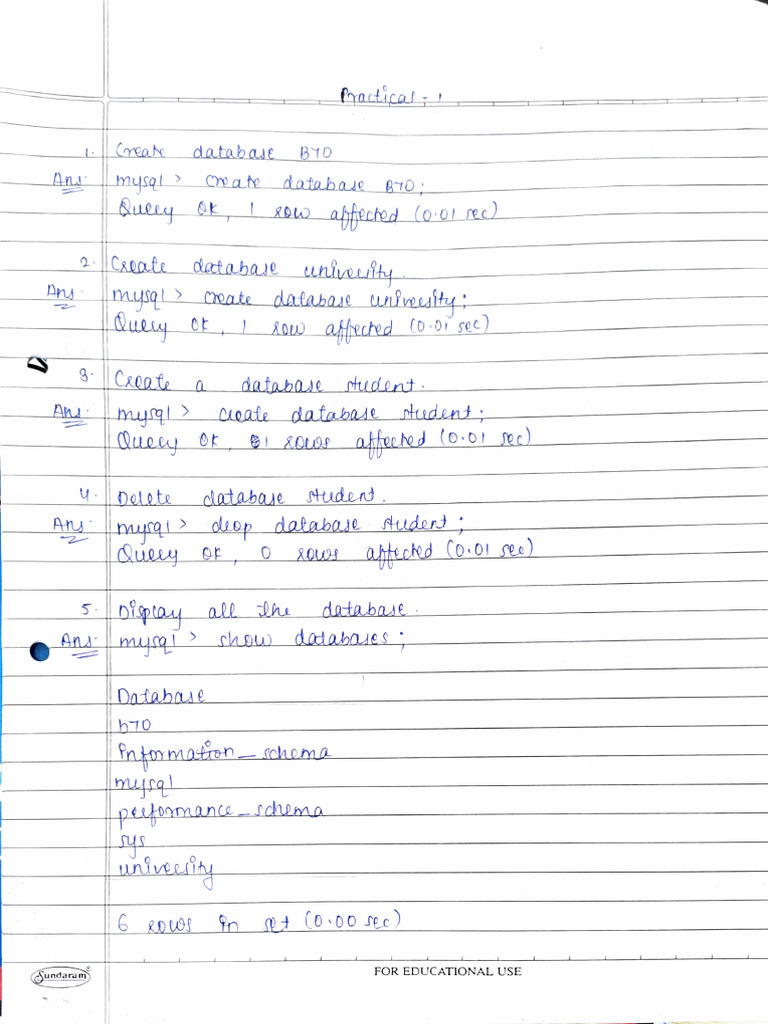 Practical - 1
1. Create database B70
Ans: mysql > create database B70;
Query OK, 1 row affected (0.01 sec)
2. Create database university.
Ans: mysql > create database university;
Query OK, 1 row affected (0.01 sec)
3. Create a database student.
Ans: mysql > create database student;
Query OK, 1 rows affected (0.01 sec)
4. Delete database student.
Ans: mysql > drop database student;
Query OK, 0 rows affected (0.01 sec)
5. Display all the database.
Ans: mysql > show databases;
Database
b70
information_schema
mysql
performance_schema
sys
university
6 rows in set (0.00 sec)
Sundaram® FOR EDUCATIONAL USE